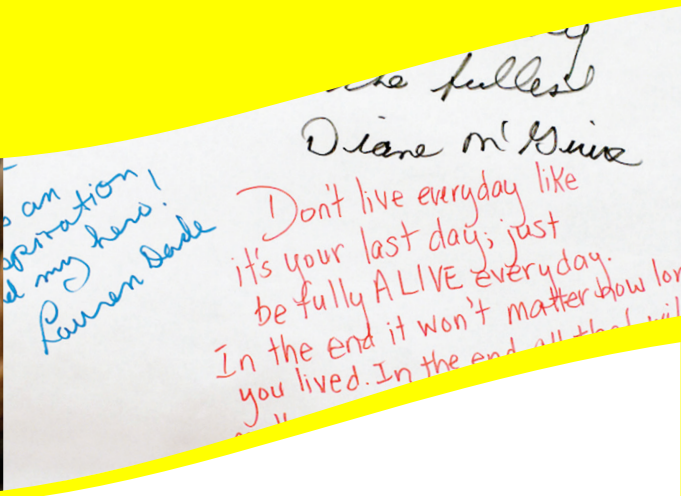 the fullest
Diane M'Guire
an
my hero!
Lauren Dade
Don't live everyday like
it's your last day; just
be fully ALIVE everyday.
In the end it won't matter how
you lived. In the end all that